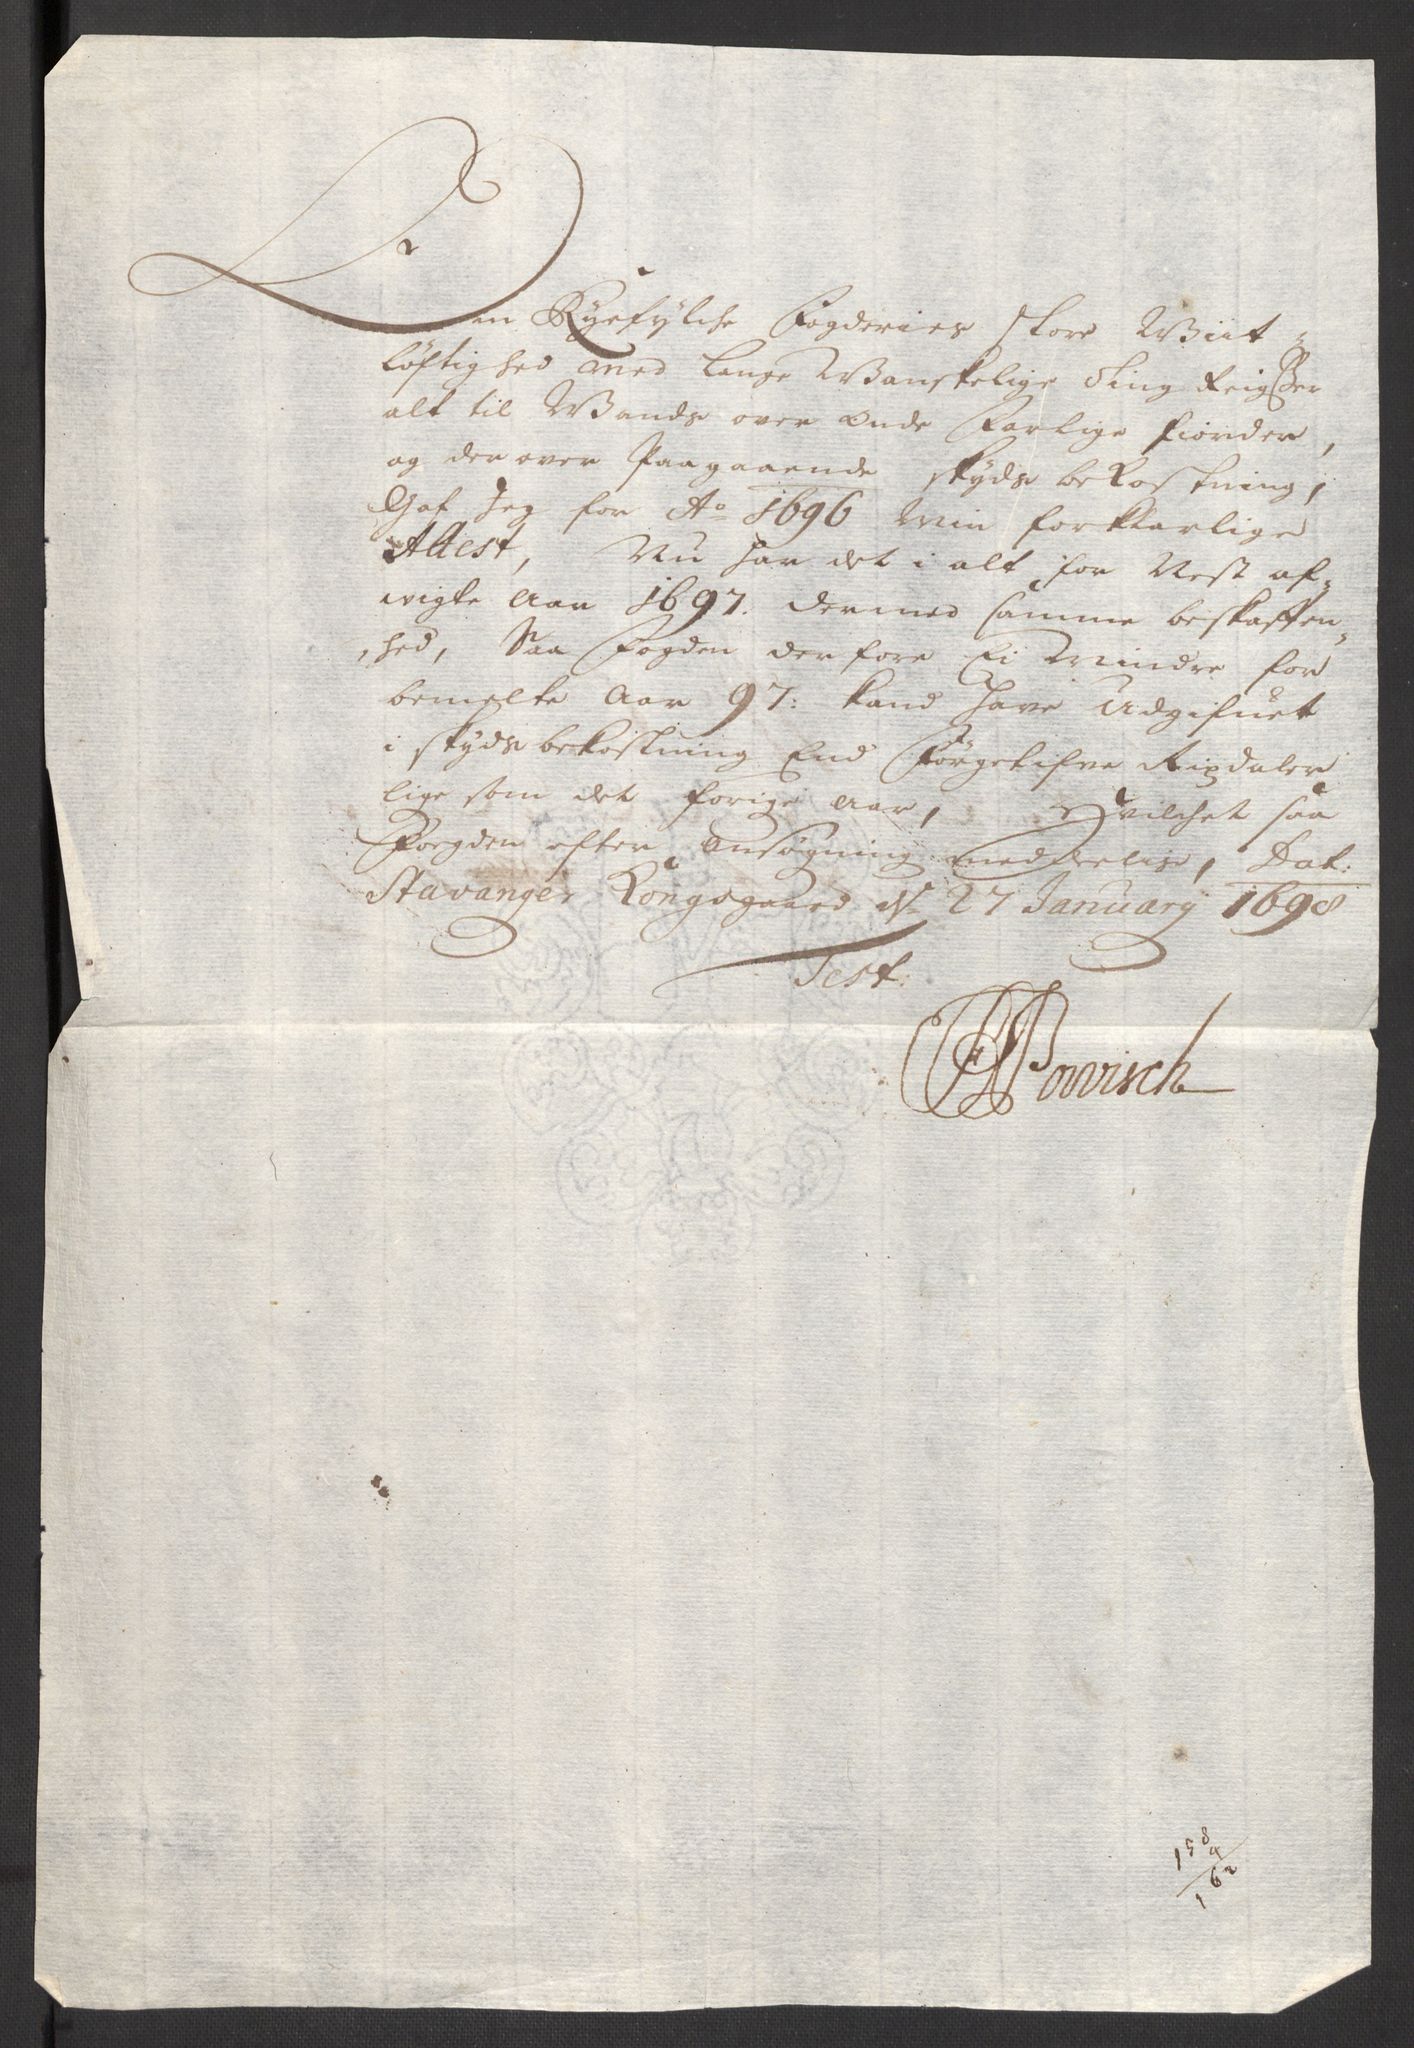 Den Ryefylche Fogderies store Wiit-
løftighed med lange Wanskelige Ting Reigsser
alt til Wands over onde Farlige fiorder,
og der over Paagaaende skyds bekostning,
Gaf Jeg for Ao 1696 min forklarlige
Attest, Nu har det i alt for Nest af-
wigte Aar 1697. dermed samme beskaffen-
hed, Saa Fogden derfore Ei mindre for
bemelte Aar 97: kand have Udgifuet
i skyds bekostning End Førgetifve Rixdaler
lige som det forige Aar, Hvilchet saa
Foegden efter Ansøgning meddeelis, Dat:
Stavanger Kongsgaard ds. 27 January 1698
Test:
Powisch
158
4
162